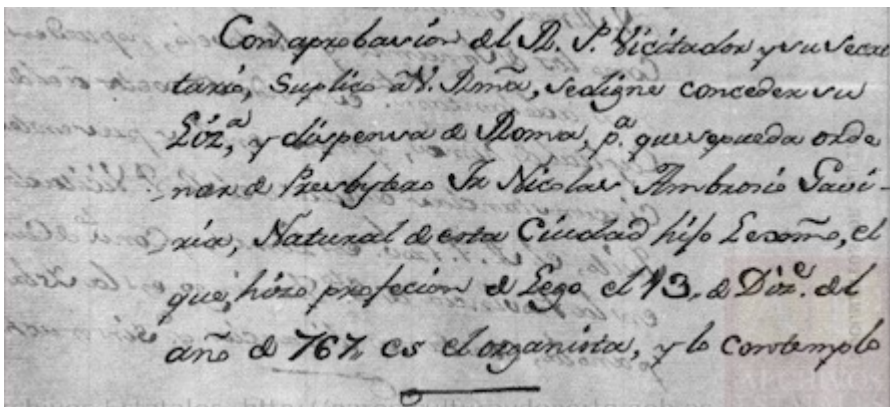 Con aprobasión del R. P. Vicitador y su secre
tario, Suplico a V. Rmã, se digne conceder su
Liz.ª, y dispensa de Roma, p.ª que se pueda orde
nar de Presbytero Fr Nicolas Ambrosio Gavi-
ria, Natural de esta Ciudad hijo Lexmõ, el
que, hizo profeción de Lego el 13. de Diz.e del
año de 767 es el organista, y lo contemplo